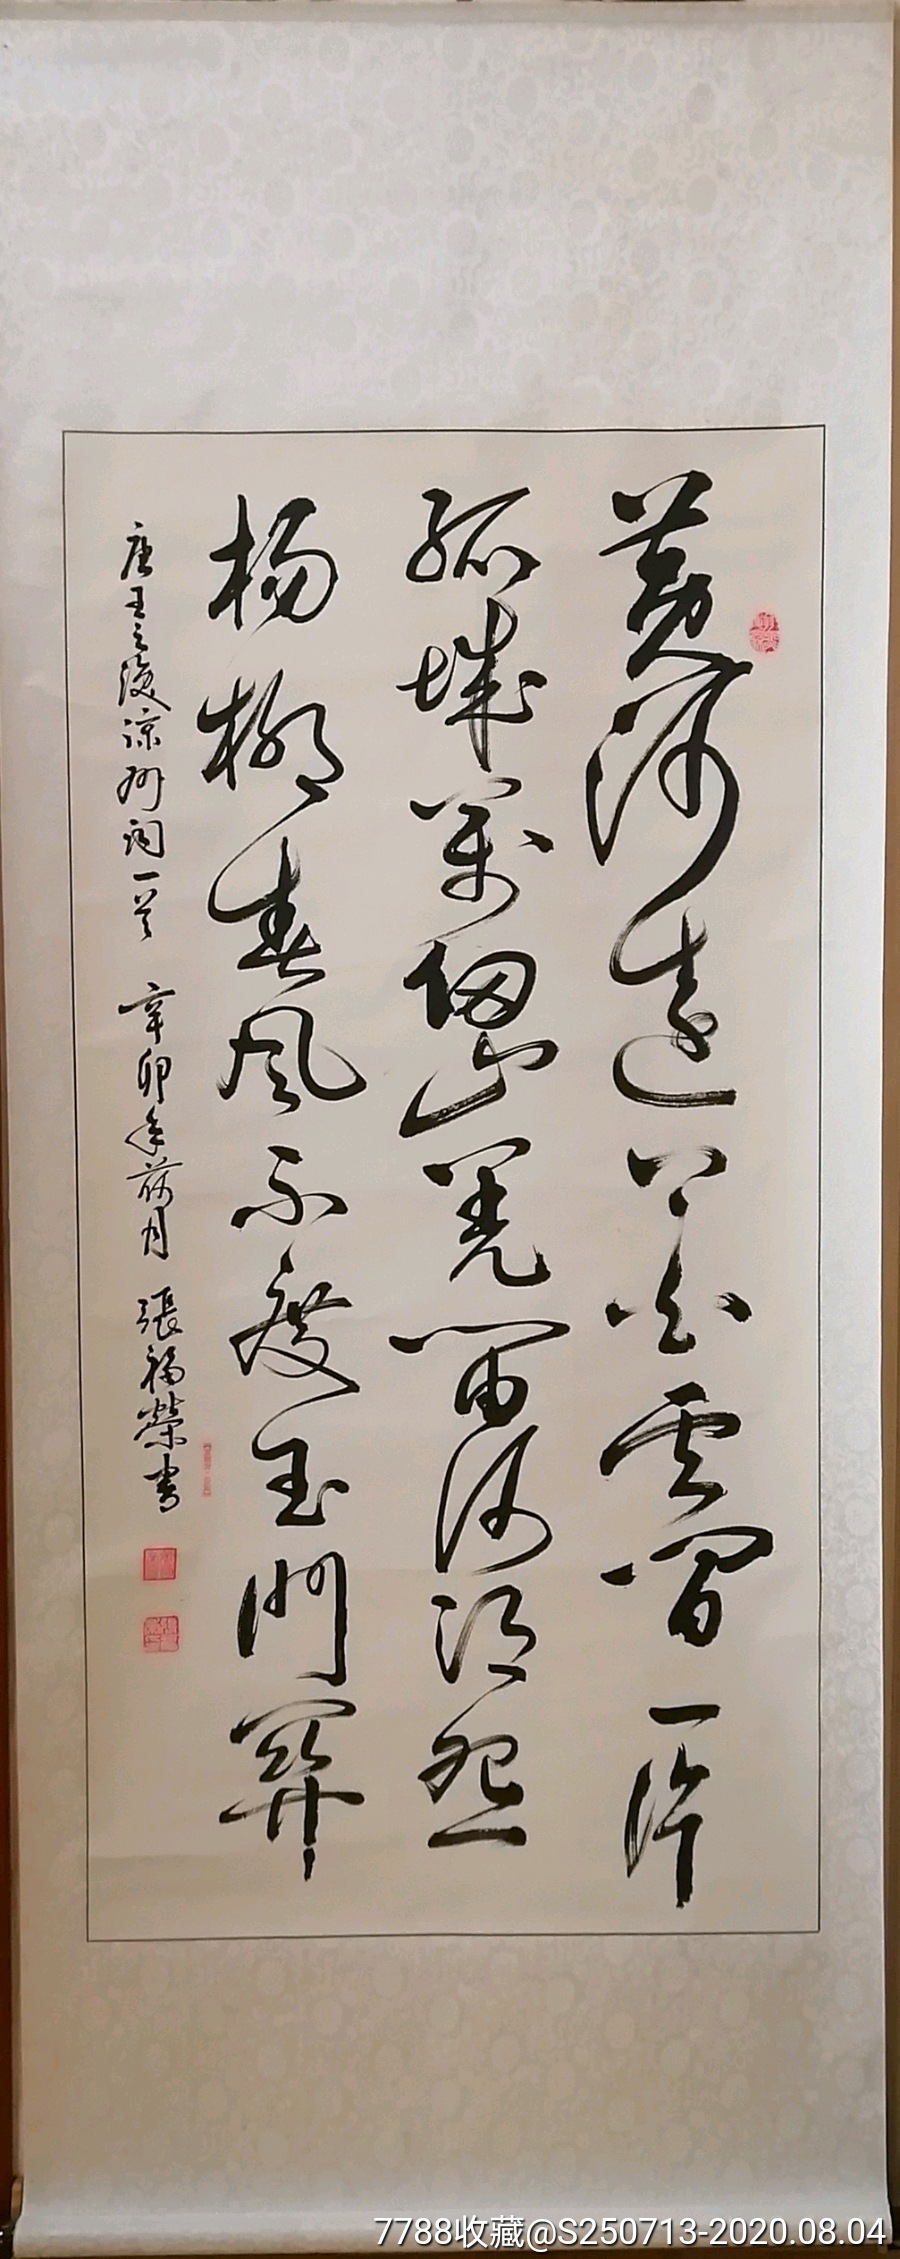 黄河远上白云间一片
孤城万仞山羌笛何须怨
杨柳春风不度玉门关
唐王之涣凉州词一首 辛卯年荷月 張福榮书
7788收藏@S250713-2020.08.04